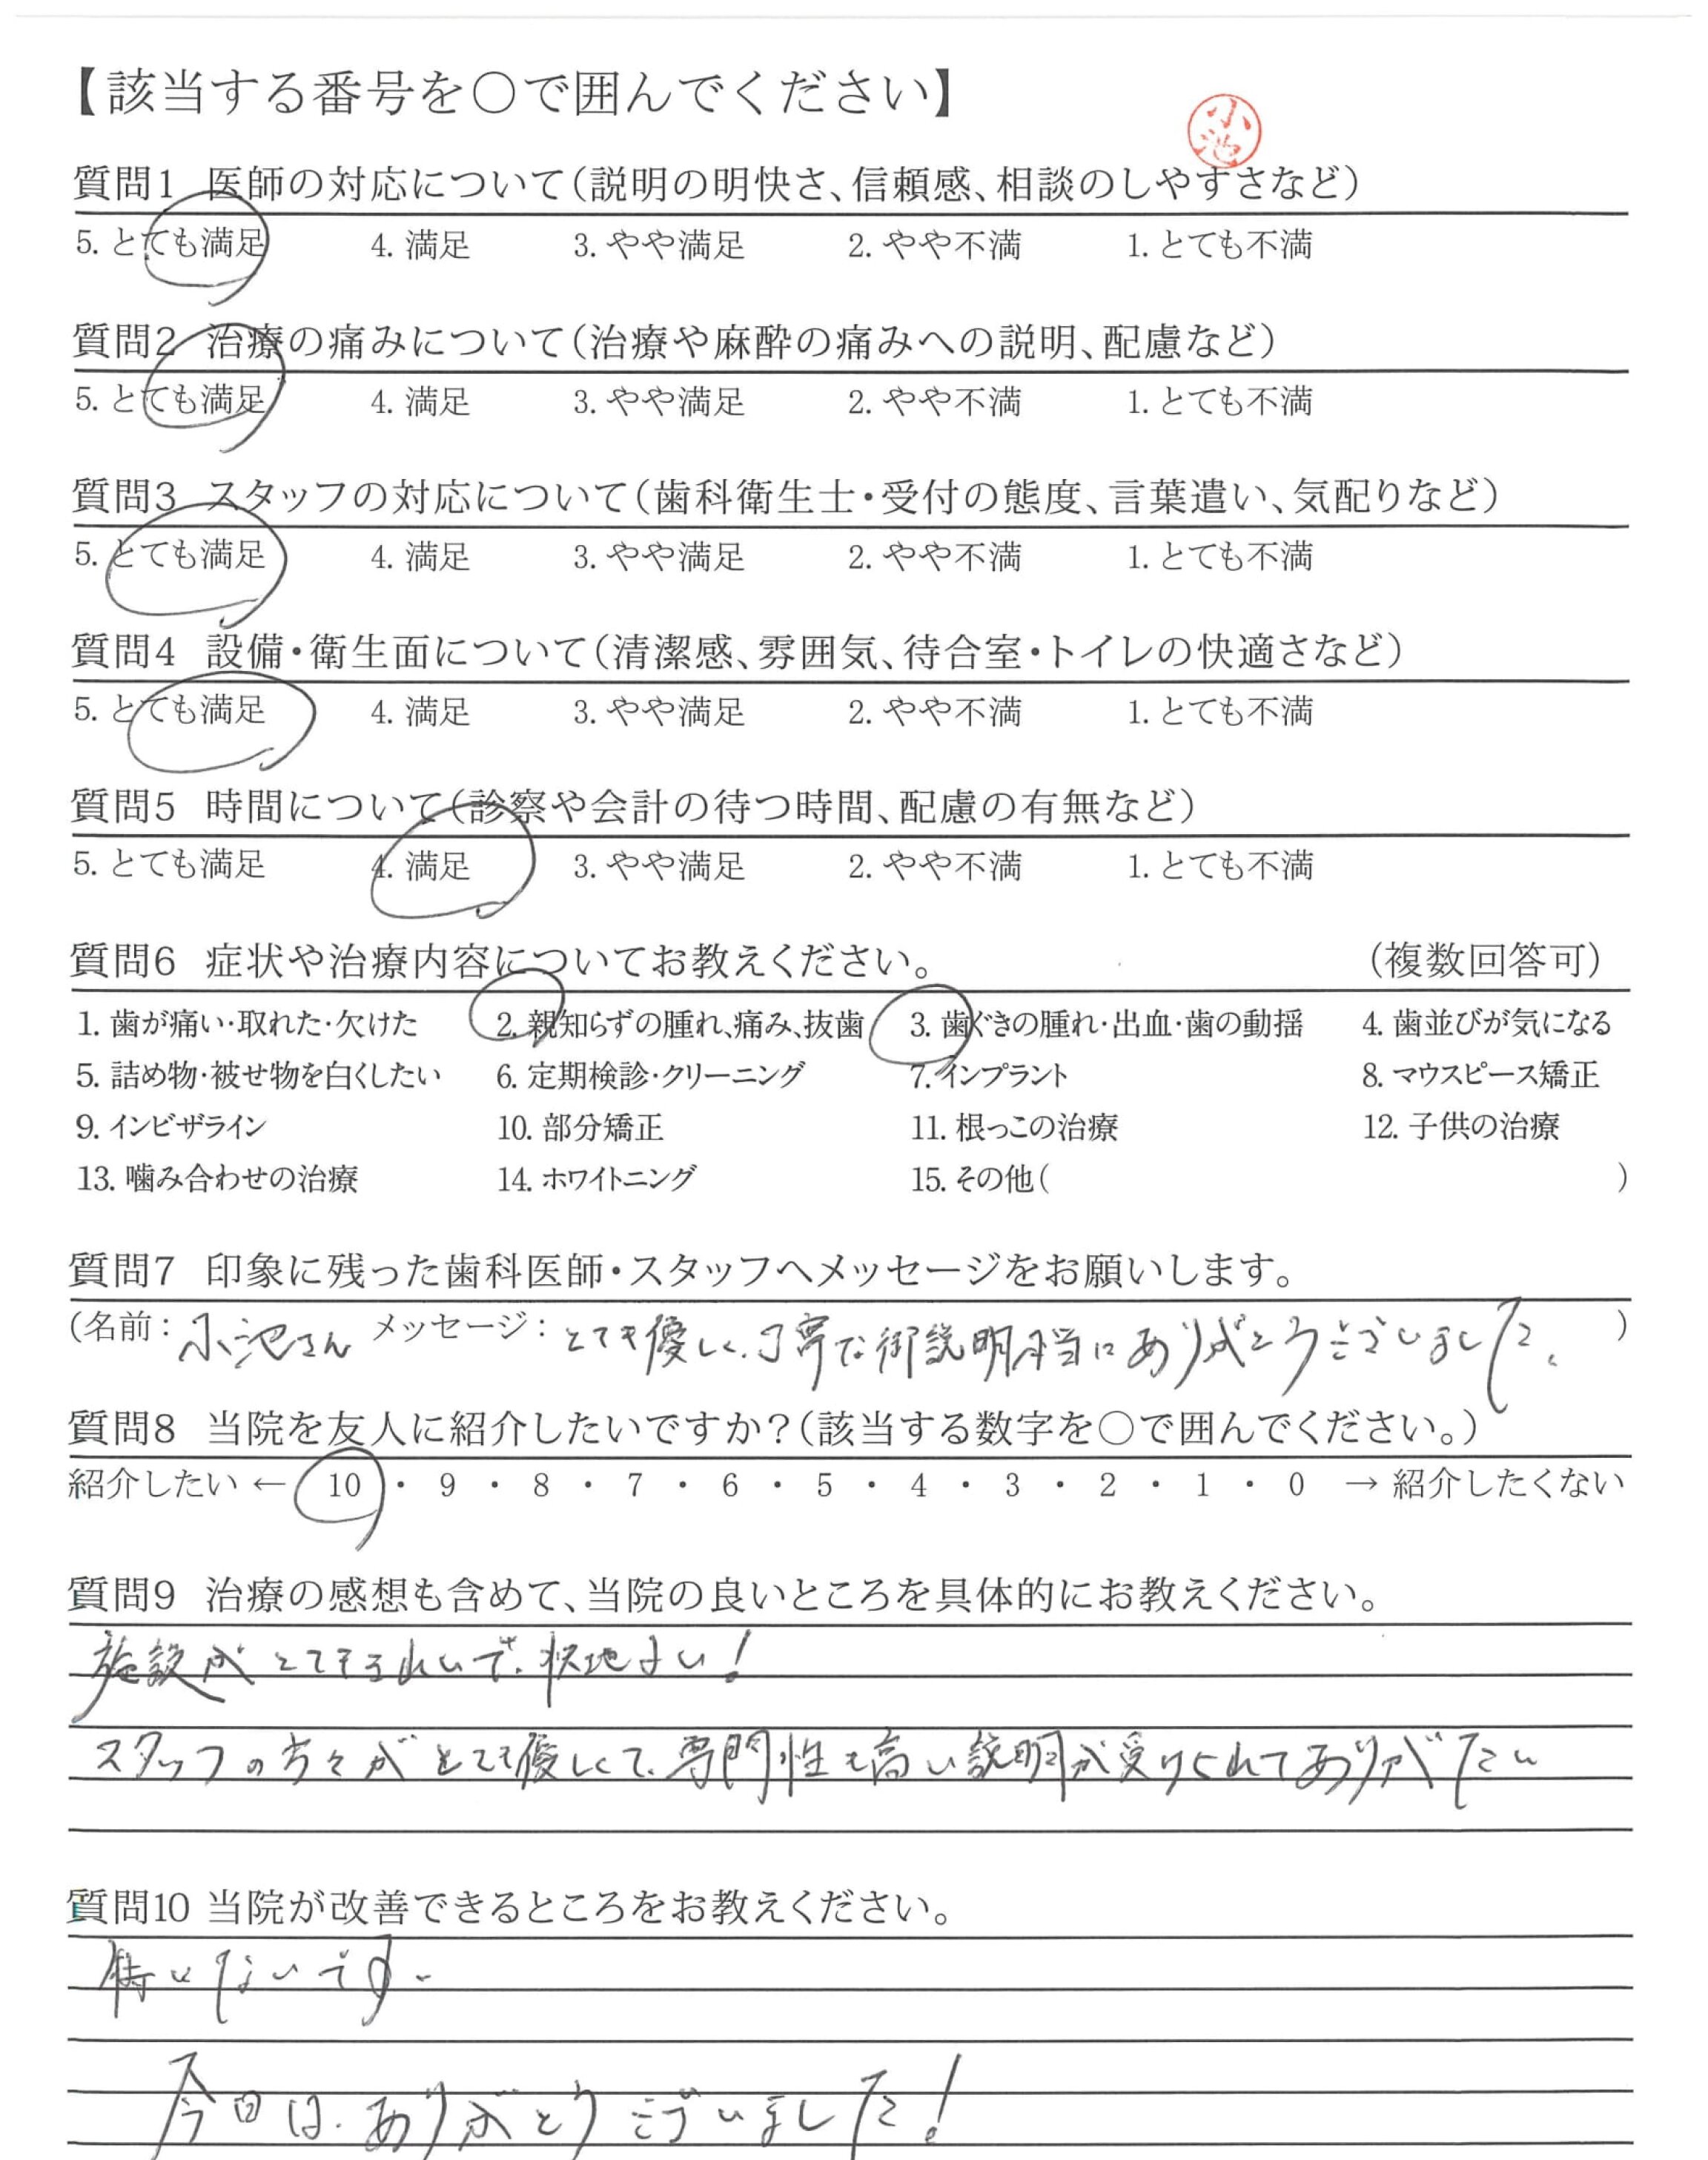 【該当する番号を○で囲んでください】
小池
質問1 医師の対応について(説明の明快さ、信頼感、相談のしやすさなど)
5. とても満足 4. 満足 3. やや満足 2. やや不満 1. とても不満
質問2 治療の痛みについて(治療や麻酔の痛みへの説明、配慮など)
5. とても満足 4. 満足 3. やや満足 2. やや不満 1. とても不満
質問3 スタッフの対応について(歯科衛生士・受付の態度、言葉遣い、気配りなど)
5. とても満足 4. 満足 3. やや満足 2. やや不満 1. とても不満
質問4 設備・衛生面について(清潔感、雰囲気、待合室・トイレの快適さなど)
5. とても満足 4. 満足 3. やや満足 2. やや不満 1. とても不満
質問5 時間について(診察や会計の待つ時間、配慮の有無など)
5. とても満足 4. 満足 3. やや満足 2. やや不満 1. とても不満
質問6 症状や治療内容についてお教えください。 (複数回答可)
1. 歯が痛い・取れた・欠けた 2. 親知らずの腫れ、痛み、抜歯 3. 歯ぐきの腫れ・出血・歯の動揺 4. 歯並びが気になる
5. 詰め物・被せ物を白くしたい 6. 定期検診・クリーニング 7. インプラント 8. マウスピース矯正
9. インビザライン 10. 部分矯正 11. 根っこの治療 12. 子供の治療
13. 噛み合わせの治療 14. ホワイトニング 15. その他( )
質問7 印象に残った歯科医師・スタッフへメッセージをお願いします。
(名前: 小池さん メッセージ: とても優しく、丁寧な御説明本当にありがとうございました。 )
質問8 当院を友人に紹介したいですか?(該当する数字を○で囲んでください。)
紹介したい ← 10 ・ 9 ・ 8 ・ 7 ・ 6 ・ 5 ・ 4 ・ 3 ・ 2 ・ 1 ・ 0 → 紹介したくない
質問9 治療の感想も含めて、当院の良いところを具体的にお教えください。
施設がとてもきれいで、心地よい!
スタッフの方々がとても優しくて、専門性も高い説明が受けられてありがたい
質問10 当院が改善できるところをお教えください。
特にないです。
今回は、ありがとうございました!